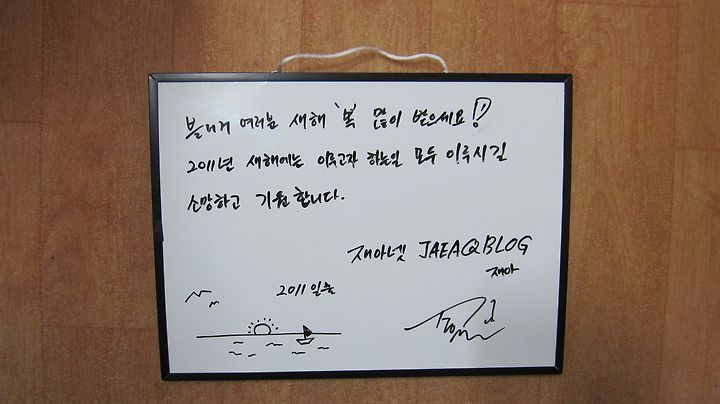 블나거 여러분 새해 '복' 많이 받으세요!
2011년 새해에는 이루고자 하는일 모두 이루시길
소망하고 기원합니다.
재아넷 JAEAQBLOG
재아
2011 일출